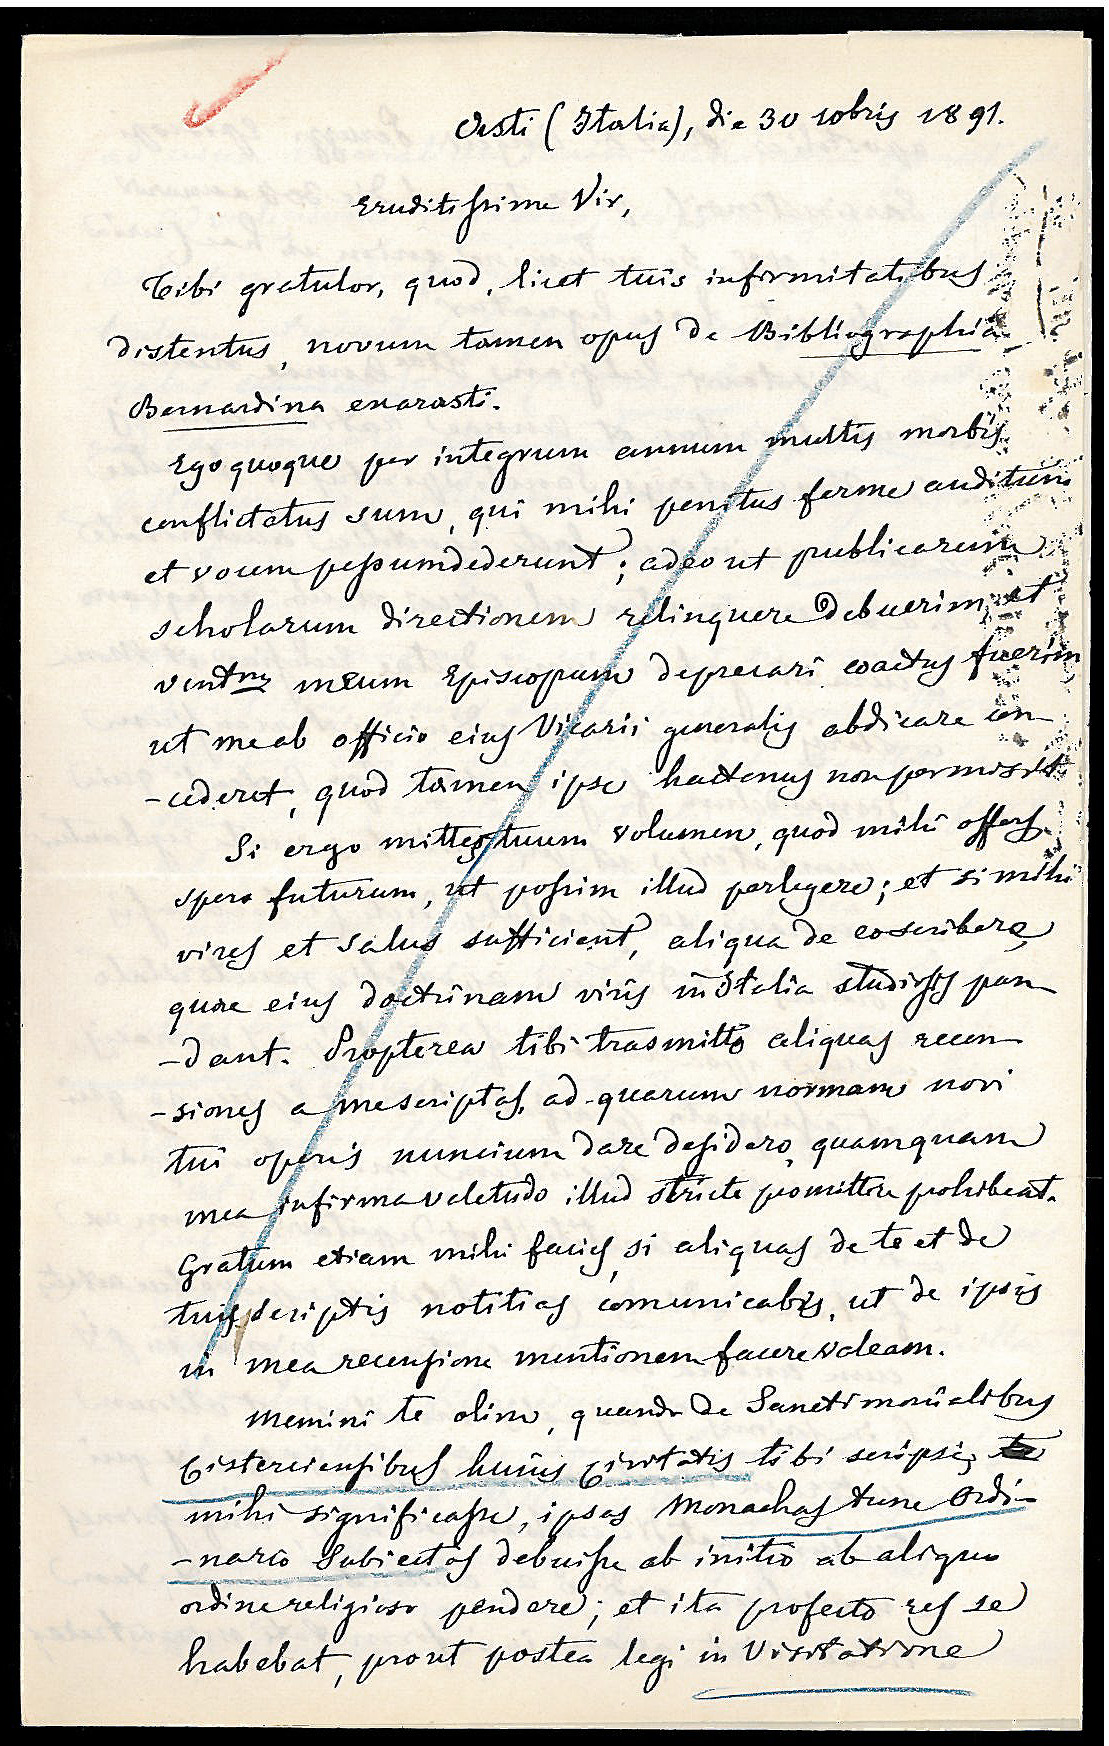 Asti (Italia), die 30 10bris 1891.
Eruditissime Vir,
Tibi gratulor, quod, licet tuis infirmitatibus
distentus, novum tamen opus de Bibliographia
Bernardina exarasti.
Ego quoque per integrum annum multis morbis
conflictatus sum, qui mihi penitus ferme auditum
et vocem pessumdederunt; adeo ut publicarum
scholarum directionem relinquere debuerim, et
meum Episcopum deprecari coactus fuerim
ut me ab officio eius Vicarii generalis abdicare con
-cederet, quod tamen ipse hactenus non permisit.
Si ergo mittes tuum volumen, quod mihi offers,
spero futurum, ut possim illud perlegere; et si mihi
vires et salus sufficient, aliqua de eo scribere,
quae eius doctrinam viris in Italia studiosis pan
-dant. Propterea tibi trasmitto aliquas recen
-siones a me scriptas, ad quarum normam novi
tui operis nuncium dare desidero, quamquam
mea infirma valetudo illud stricte promittere prohibeat.
Gratum etiam mihi facies, si aliquas de te et de
tuis scriptis notitias comunicabis, ut de ipsis
in mea recensione mentionem facere valeam.
Memini te olim, quando de Sanctimonialibus
Cisterciensibus huius Civitatis tibi scripsi,
mihi significasse, ipsas Monachas tunc Ordi-
-nario Subiectas debuisse ab initio ab aliquo
ordine religioso pendere; et ita profecto res se
habebat, prout postea legi in Visitatione